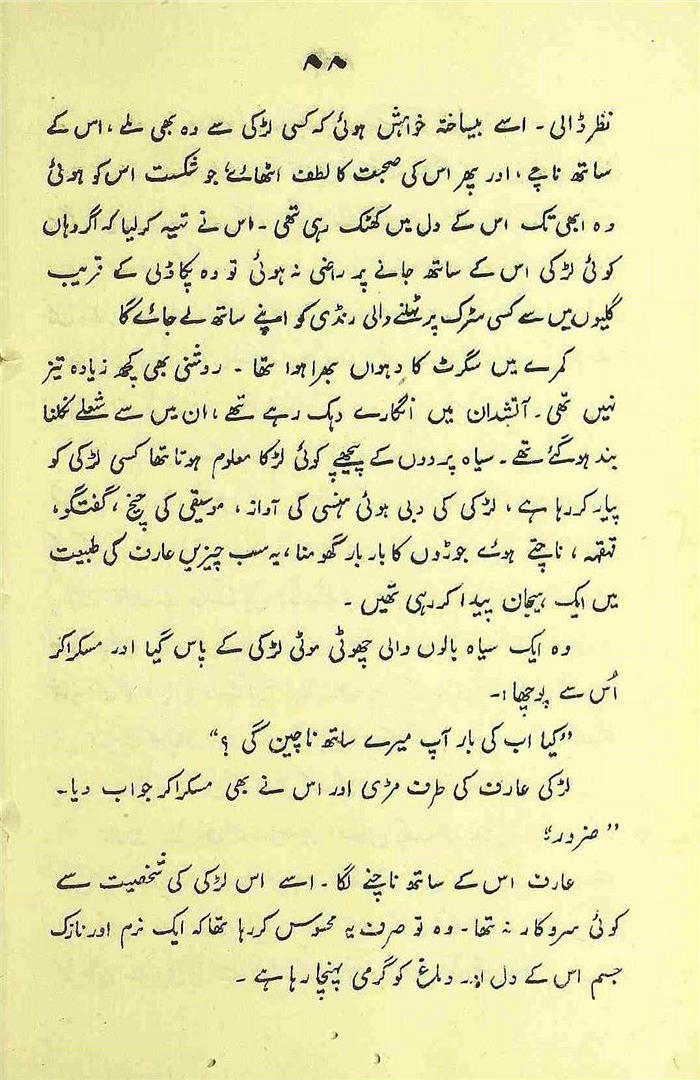 ۸۸
نظر ڈالی ۔ اسے بیساختہ خواہش ہوئی کہ کسی لڑکی سے وہ بھی ملے ، اس کے
ساتھ ناچے ، اور پھر اس کی صحبت کا لطف اٹھائے، جو شکست اس کو ہوئی
وہ ابھی تک اس کے دل میں کھٹک رہی تھی ۔ اس نے تہیہ کر لیا کہ اگر وہاں
کوئی لڑکی اس کے ساتھ جانے پر راضی نہ ہوئی تو وہ پکاڈلی کے قریب
گلیوں میں سے کسی سڑک پر ٹہلنے والی رنڈی کو اپنے ساتھ لے جائے گا
کمرے میں سگرٹ کا دہواں بھرا ہوا تھا ۔ روشنی بھی کچھ زیادہ تیز
نہیں تھی ۔ آتشدان میں انگارے دہک رہے تھے ، ان میں سے شعلے نکلنا
بند ہو گئے تھے ۔ سیاہ پردوں کے پیچھے کوئی لڑکا معلوم ہوتا تھا کسی لڑکی کو
پیار کر رہا ہے ، لڑکی کی دبی ہوئی ہنسی کی آواز ، موسیقی کی چیخ ، گفتگو،
قہقہہ ، ناچتے ہوئے جوڑوں کا بار بار گھومنا ، یہ سب چیزیں عارف کی طبیعت
میں ایک ہیجان پیدا کر رہی تھیں ۔
وہ ایک سیاہ بالوں والی چھوٹی موٹی لڑکی کے پاس گیا اور مسکرا کر
اُس سے پوچھا :۔
”کیا اب کی بار آپ میرے ساتھ ناچیں گی ؟“
لڑکی عارف کی طرف مڑی اور اس نے بھی مسکرا کر جواب دیا ۔
”ضرور“
عارف اس کے ساتھ ناچنے لگا ۔ اسے اس لڑکی کی شخصیت سے
کوئی سروکار نہ تھا ۔ وہ تو صرف یہ محسوس کر رہا تھا کہ ایک نرم اور نازک
جسم اس کے دل اور دماغ کو گرمی پہنچا رہا ہے ۔